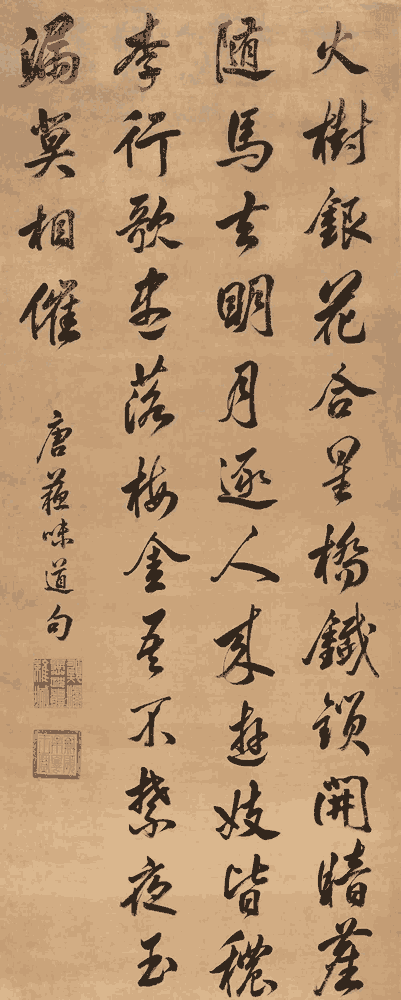 火樹銀花合星橋鐵鎖開暗塵
隨馬去明月逐人來遊妓皆穠
李行歌盡落梅金吾不禁夜玉
漏莫相催
唐蘇味道句